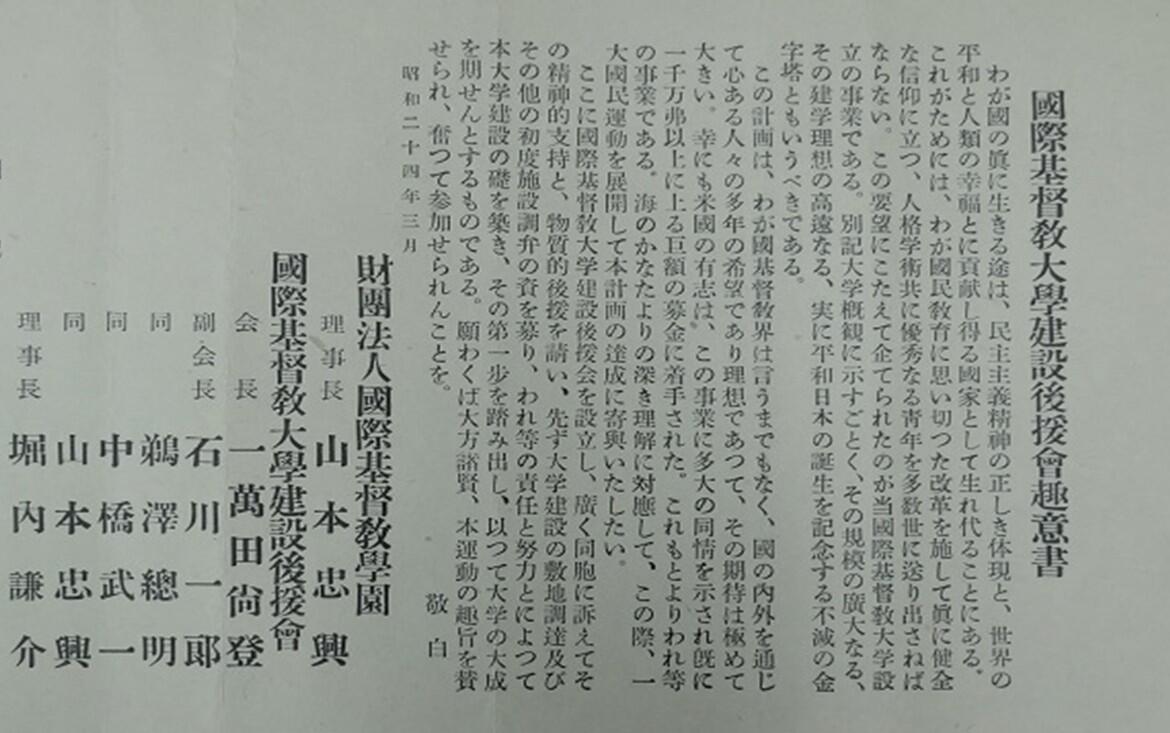 國際基督敎大學建設後援會趣意書
わが國の眞に生きる途は、民主主義精神の正しき体現と、世界の
平和と人類の幸福とに貢献し得る國家として生れ代ることにある。
これがためには、わが國民敎育に思い切つた改革を施して眞に健全
な信仰に立つ、人格学術共に優秀なる靑年を多数世に送り出さねば
ならない。この要望にこたえて企てられたのが当國際基督敎大学設
立の事業である。別記大学概観に示すごとく、その規模の廣大なる、
その建学理想の高遠なる、実に平和日本の誕生を記念する不滅の金
字塔ともいうべきである。
この計画は、わが國基督敎界は言うまでもなく、國の内外を通じ
て心ある人々の多年の希望であり理想であつて、その期待は極めて
大きい。幸にも米國の有志は、この事業に多大の同情を示され既に
一千万弗以上に上る巨額の募金に着手された。これもとよりわれ等
の事業である。海のかなたよりの深き理解に対應して、この際、一
大國民運動を展開して本計画の達成に寄與いたしたい。
ここに國際基督敎大学建設後援会を設立し、廣く同胞に訴えてそ
の精神的支持と、物質的後援を請い、先ず大学建設の敷地調達及び
その他の初度施設調弁の資を募り、われ等の責任と努力とによつて
本大学建設の礎を築き、その第一步を踏み出し、以つて大学の大成
を期せんとするものである。願わくば大方諸賢、本運動の趣旨を賛
せられ、奮つて参加せられんことを。
敬白
昭和二十四年三月
財團法人國際基督敎學園
理事長 山本忠興
國際基督敎大學建設後援會
会長 一萬田尙登
副会長 石川一郞
同 鵜澤總明
同 中橋武一
同 山本忠興
理事長 堀內謙介